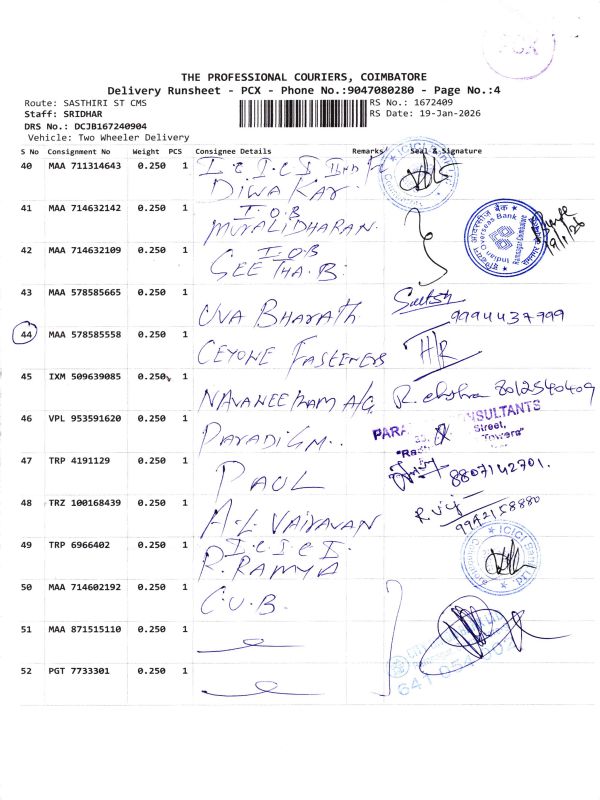 PCX
THE PROFESSIONAL COURIERS, COIMBATORE
Delivery Runsheet - PCX - Phone No.:9047080280 - Page No.:4
Route: SASTHIRI ST CMS
RS No.: 1672409
Staff: SRIDHAR
RS Date: 19-Jan-2026
DRS No.: DCJB167240904
Vehicle: Two Wheeler Delivery
S No Consignment No Weight PCS Consignee Details Remarks Seal & Signature
40 MAA 711314643 0.250 1 I.C.I.C.I IInd
DIWAKAR
ICICI
41 MAA 714632142 0.250 1 I.O.B
MURALIDHARAN.
Indian Overseas Bank
19/1/26
42 MAA 714632109 0.250 1 I.O.B
GEETHA.B.
43 MAA 578585665 0.250 1 UVA BHARATH
9994437999
44 MAA 578585558 0.250 1 CEYONE FASTENERS
45 IXM 509639085 0.250 1 NAVANEETHAM A/C
8012540409
46 VPL 953591620 0.250 1 PARADIGM..
PARA CONSULTANTS
Street,
Towers"
47 TRP 4191129 0.250 1 PAUL
8807142701.
48 TRZ 100168439 0.250 1 A.L. VAIRAVAN
9942158880
49 TRP 6966402 0.250 1 I.C.I.C.I.
R. RAMYA
ICICI Bank
50 MAA 714602192 0.250 1 C.U.B.
51 MAA 871515110 0.250 1
52 PGT 7733301 0.250 1
641 054